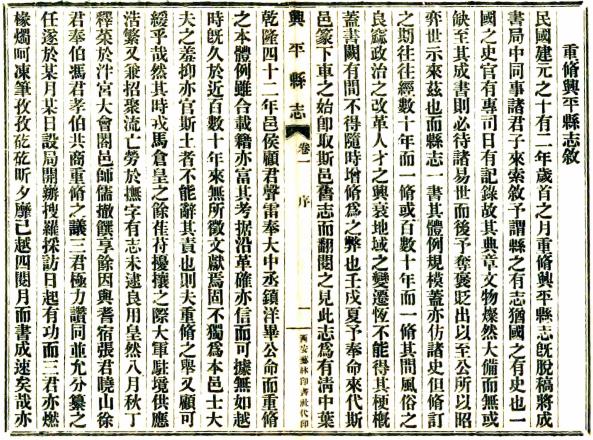 重脩興平縣志敘
民國建元之十有二年歲首之月重脩興平縣志旣脫稿將成
書局中同事諸君子來索敘予謂縣之有志猶國之有史也一
國之史官有專司日有記錄故其典章文物燦然大備而無或
缺至其成書則必待諸易世而後予奪褒貶出以至公所以昭
奕世示來茲也而縣志一書其體例規模蓋亦仿諸史但脩訂
之期往往經數十年而一脩或百數十年而一脩其間風俗之
良窳政治之改革人才之興衰地域之變遷恆不能得其梗槪
蓋書闕有間不得隨時增脩爲之弊也壬戌夏予奉命來代斯
邑篆下車之始卽取斯邑舊志而翻閱之見此志爲有淸中葉
興平縣志 卷一 序 一 西安藝林印書社代印
乾隆四十二年邑侯顧君聲雷奉大中丞鎮洋畢公命而重脩
之本體例雖合載籍亦富其考據沿革確亦信而可據無如越
時旣久於近百數十年來無所徵文獻焉固不獨爲本邑士大
夫之羞抑亦官斯土者不能辭其責也則夫重脩之舉又顧可
緩乎哉然其時戎馬倉皇之餘萑苻擾攘之際大軍駐境供應
浩繁又兼招聚流亡勞於撫字有志未逮良用皇然八月秋丁
釋菜於泮宮大會闔邑師儒撤饌享餘因與耆宿張君曉山徐
君奉伯馮君孝伯共商重脩之議三君極力讚同並允分纂之
任遂於某月某日設局開辦搜羅採訪日起有功而三君亦燃
椽燭呵凍筆孜孜矻矻昕夕靡已越四閱月而書成速矣哉亦